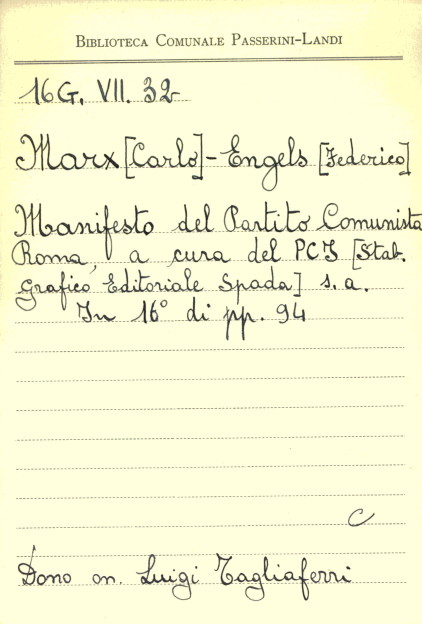 BIBLIOTECA COMUNALE PASSERINI-LANDI
16G. VII. 32
Marx [Carlo] - Engels [Federico]
Manifesto del Partito Comunista
Roma, a cura del PCI [Stab.
Grafico Editoriale Spada] s. a.
In 16° di pp. 94
C
Dono on. Luigi Tagliaferri